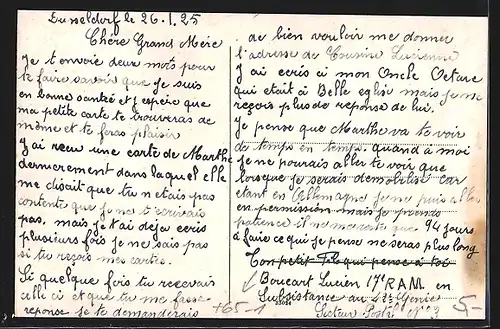 Dusseldorf le 26.1.25
Chère Grand Mère
Je t envoie deux mots pour
te faire savoir que je suis
en bonne santée et j espère que
ma petite carte te trouveras de
même et te feras plaisir
J ai recu une carte de Marthe
dernierement dans laquel elle
me disait que tu n etais pas
contente que je ne t ecrivais
pas. mais je t ai deja ecris
plusieurs fois je ne sais pas
si tu reçois mes cartes.
Si quelque fois tu recevais
celle ci et que tu me fasse
reponse je te demanderais
de bien vouloir me donner
l'adresse de Cousine Lucienne
J ai ecris a mon Oncle Octave
qui etait à Belle eglise mais je ne
reçois plus de reponse de lui.
Je pense que Marthe va te voir
de temps en temps. quand a moi
je ne pourais aller te voir que
lorsque je serais demobilisé car
etant en Allemagne je ne puis aller
en permission mais je prends
patience il ne me reste que 94 jours
a faire ce qui je pense ne seras plus long
Ton petit Fils qui pense à toi
Boucart Lucien 17e R.A.M. en
Subsistance au Genie
Secteur Postal N° 3
+65-1
5-